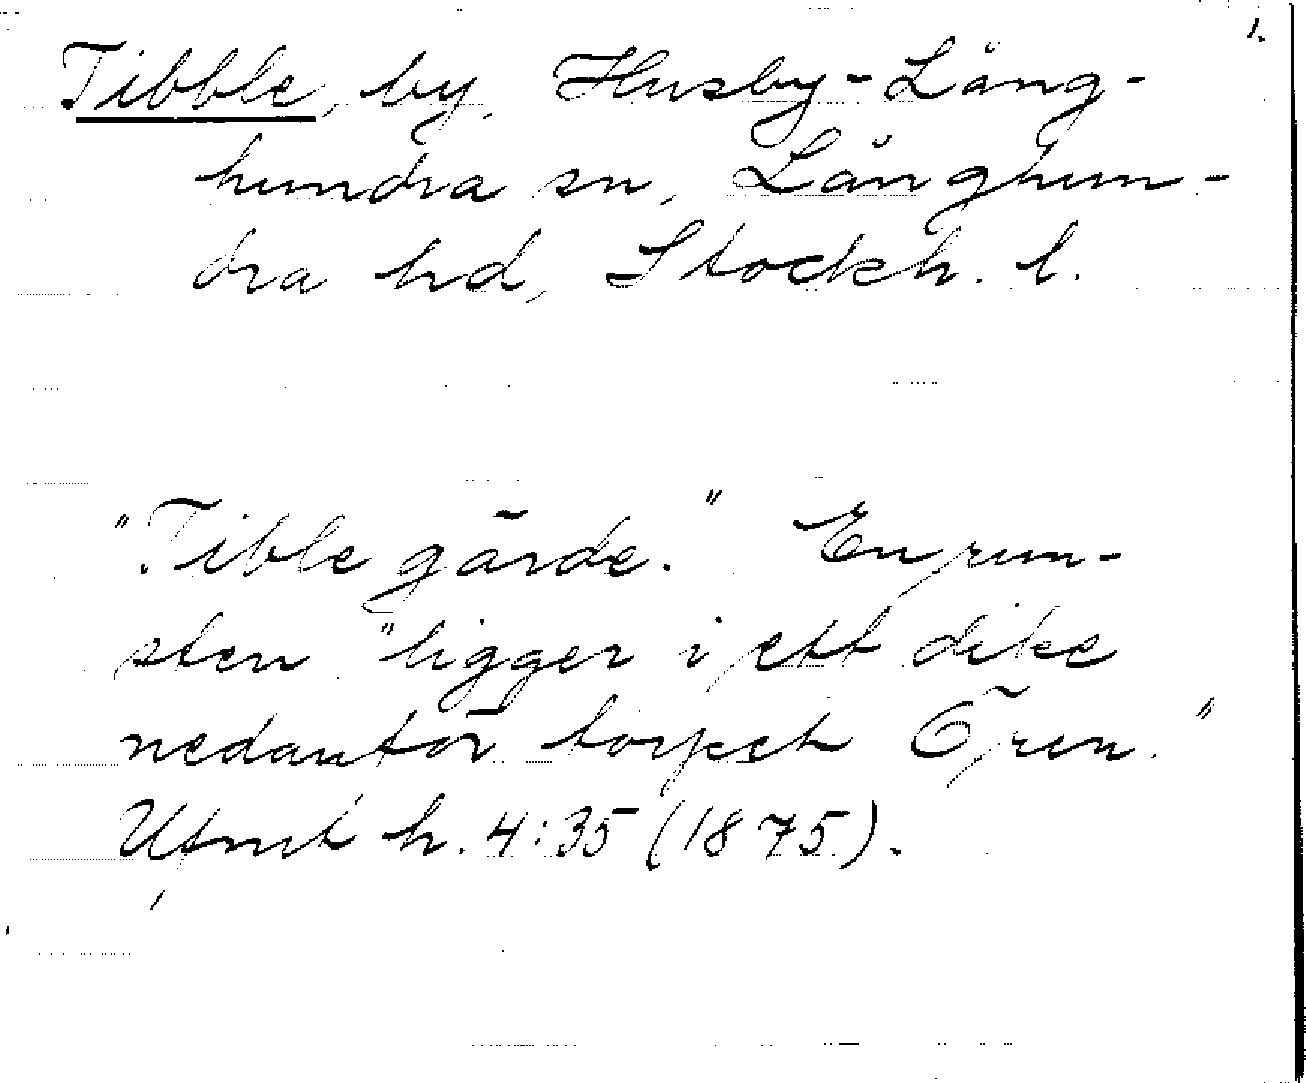 1.
Tibble, by, Husby-Lång-
hundra sn, Långhun-
dra hd, Stockh. l.
"Tible gärde." En run-
sten "ligger i ett dike
nedanför torpet Ören."
Ufmt h. 4:35 (1875).